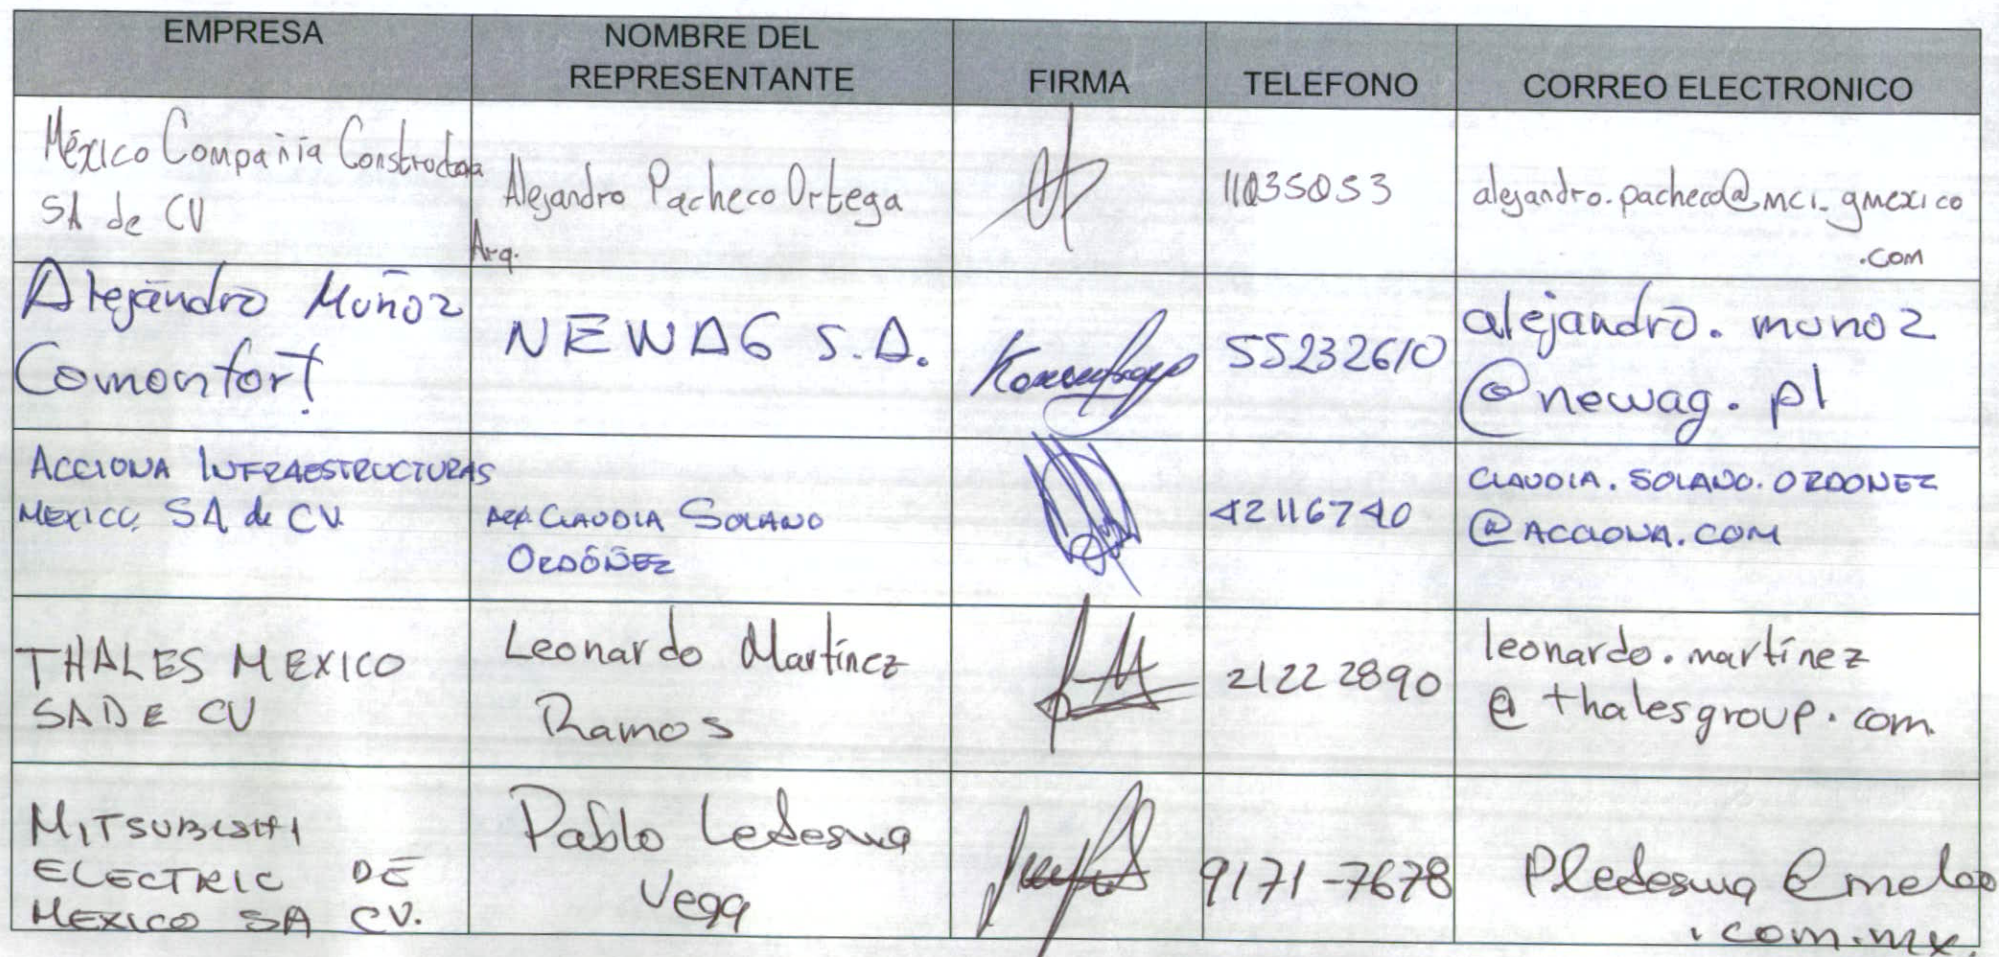 EMPRESA
NOMBRE DEL
REPRESENTANTE
FIRMA
TELEFONO
CORREO ELECTRONICO
México Compañia Constructora
SA de CV
Arq.
Alejandro Pacheco Ortega
11035053
alejandro.pacheco@mci.gmexico
.com
Alejandro Muñoz
Comonfort
NEWAG S.A.
55232610
alejandro.munoz
@newag.pl
ACCIONA INFRAESTRUCTURAS
MEXICO, SA de CV
ARQ. CLAUDIA SOLANO
ORDÓÑEZ
42116740
CLAUDIA.SOLANO.ORDONEZ
@ACCIONA.COM
THALES MEXICO
SA DE CV
Leonardo Martínez
Ramos
21222890
leonardo.martinez
@thalesgroup.com
MITSUBISHI
ELECTRIC DE
MEXICO SA CV.
Pablo Ledesma
Vega
9171-7678
Pledesma@melco
.com.mx.